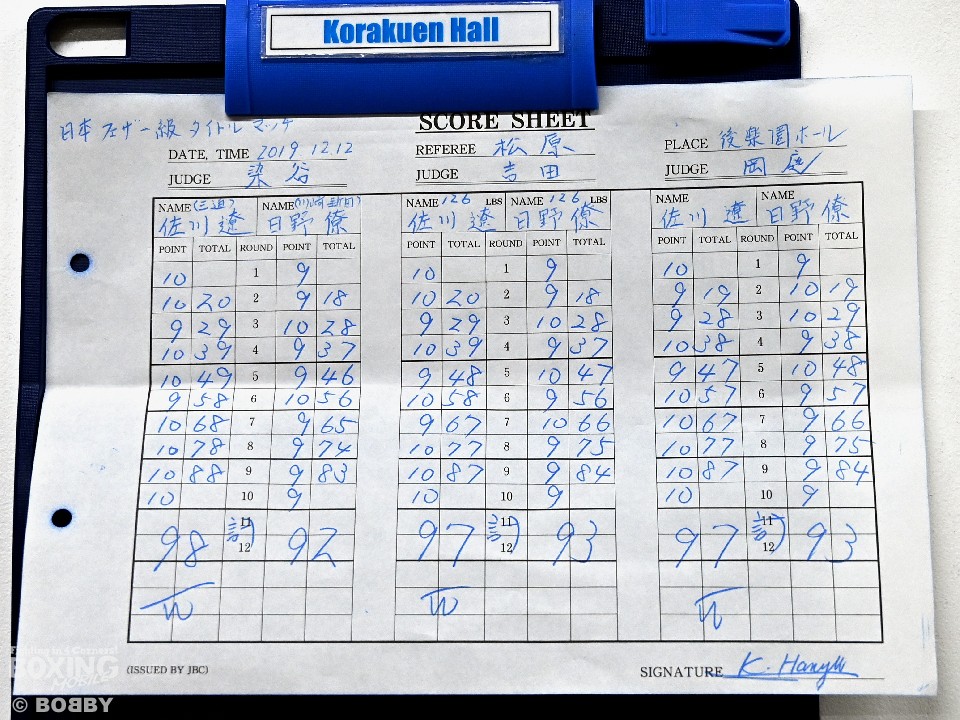 Korakuen Hall
日本フェザー級 タイトル マッチ
SCORE SHEET
DATE, TIME 2019 12.12 REFEREE 松原 PLACE 後楽園ホール
JUDGE 染谷 JUDGE 吉田 JUDGE 岡庭
NAME (三迫) NAME (川崎新田) NAME 126 LBS NAME 126 LBS NAME NAME
佐川 遼 日野 僚 佐川 遼 日野 僚 佐川 遼 日野 僚
POINT TOTAL ROUND POINT TOTAL POINT TOTAL ROUND POINT TOTAL POINT TOTAL ROUND POINT TOTAL
10 1 9 10 1 9 10 1 9
10 20 2 9 18 10 20 2 9 18 9 19 2 10 19
9 29 3 10 28 9 29 3 10 28 9 28 3 10 29
10 39 4 9 37 10 39 4 9 37 10 38 4 9 38
10 49 5 9 46 9 48 5 10 47 9 47 5 10 48
9 58 6 10 56 10 58 6 9 56 10 57 6 9 57
10 68 7 9 65 9 67 7 10 66 10 67 7 9 66
10 78 8 9 74 10 77 8 9 75 10 77 8 9 75
10 88 9 9 83 10 87 9 9 84 10 87 9 9 84
10 10 9 10 10 9 10 10 9
98 計 11 12 92 97 計 11 12 93 97 計 11 12 93
W W W
(ISSUED BY JBC) SIGNATURE K.
BOXING
© BOBBY